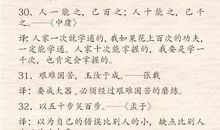 30、人一能之，己百之；人十能之，己千
之。——《中庸》
译：人家一次就学通的，我如果花上百次的功夫，
一定能学通。人家十次能掌握的，我要是学一千
次，也肯定会掌握的。
31、艰难困苦，玉汝于成。——张载
译：要成大器，必须经过艰难困苦的磨练。
32、以五十步笑百步。——《孟子》
译：以为自己的错误比别人的小，缺点比别人